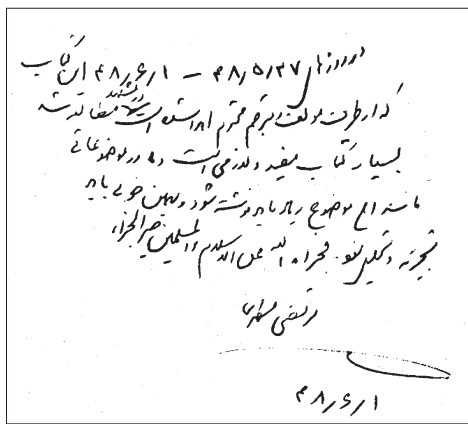 در روزهای ۴۸/۵/۲۷ – ۴۸/۶/۱ این کتاب
که از طرف مؤلف محترم اهدا شده است مطالعه شد
بسیار کتاب مفید و لازمی است و در موضوعاتی
مانند این موضوع زیاد باید نوشته شود و به این خوبی باید
تجزیه و تحلیل شود. فجزاه الله عن الاسلام و المسلمین خیر الجزاء
مرتضی مطهری
۴۸/۶/۱